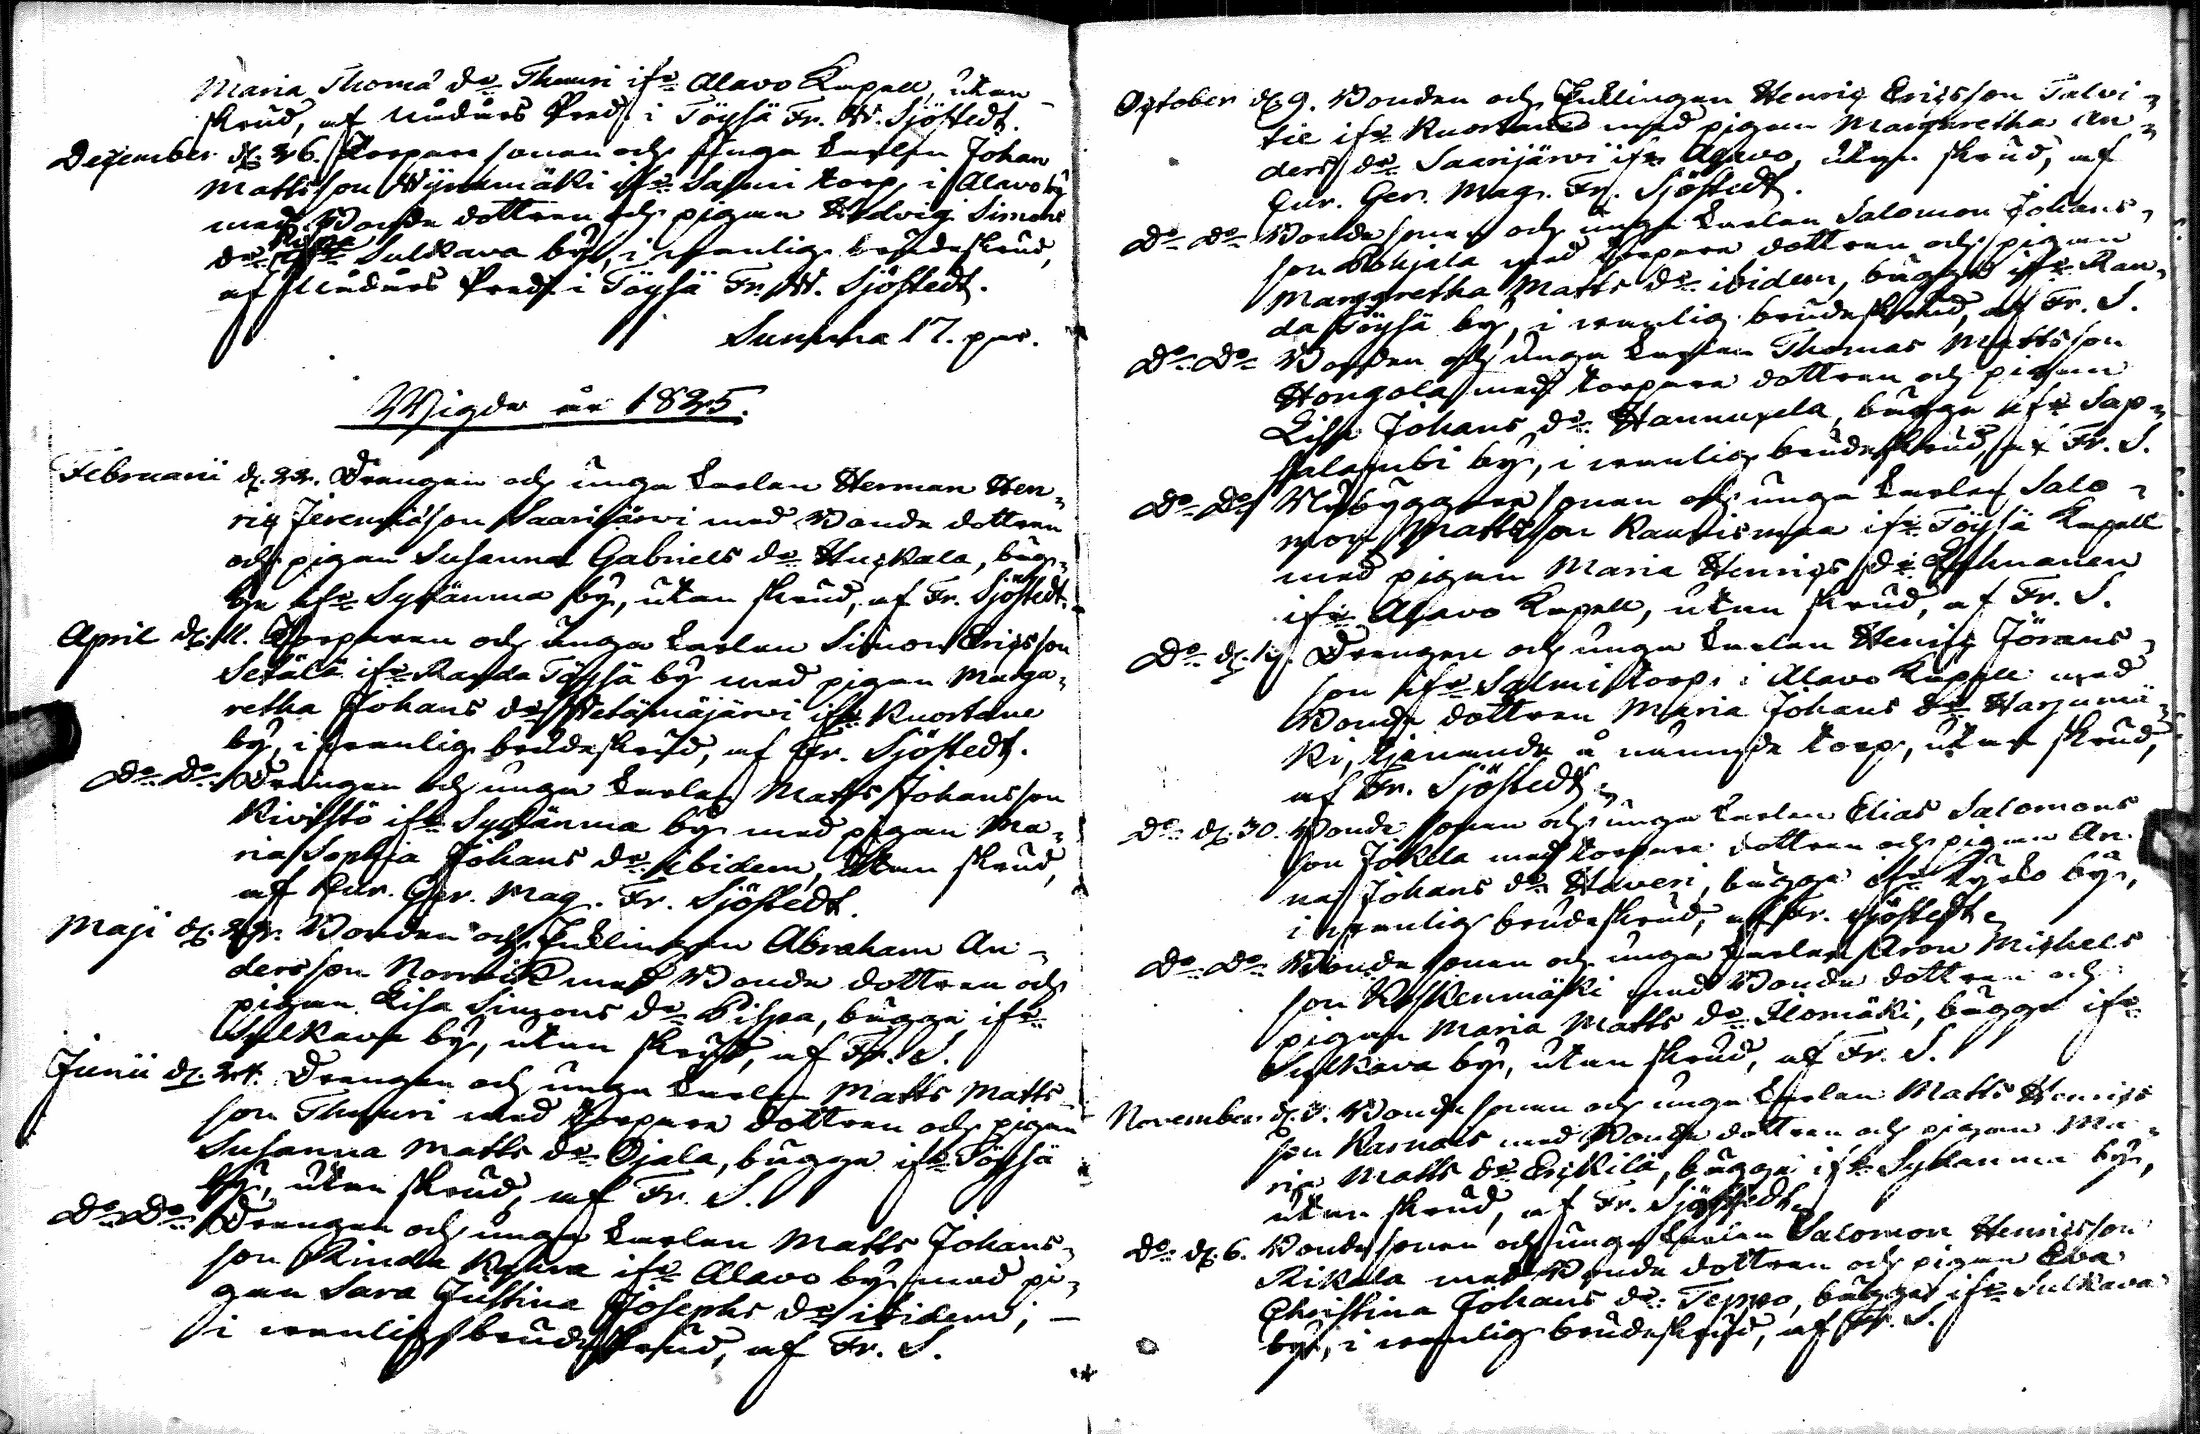 Maria Thomä dr Thuuri ifr Alavo Kapell, utan
skrud, af Nådårs Pred. i Töysä Fr. W. Sjöstedt.
December d. 26. Torpare sonen och unga Karlen Johan
Mattsson ifr Salmi torp i Alavo by
med Bonde dottren och pigan Hedvig Simons
dr ifr Sulkava by, i vanlig brudeskrud,
af Nådårs Pred. i Töysä Fr. W. Sjöstedt.
Summa 17. par.
Wigde år 1825.
Februarii d. 22. Drengen och unga Karlen Herman Hen-
ric Jeremiæson Saarijärvi med Bonde dottren
och pigan Susanna Gabriels dr Huckala, båg-
ge ifr Sydänma by, utan skrud, af Fr. Sjöstedt.
April d. 11. Torparen och unga Karlen Simon Ericsson
Setälä ifr Randa Töysä by med pigan Marga-
retha Johans dr ifr Kuortane
by, i vanlig brudeskrud, af Fr. Sjöstedt.
Do Do Drengen och unga Karlen Matts Johansson
Kivistö ifr Sydänma by med pigan Ma-
ria Sophia Johans dr ibidem, utan skrud,
af Cur. Ger. Mag. Fr. Sjöstedt.
Maji d. Bonden och Enklingen Abraham An-
dersson Norrvik med Bonde dottren och
pigan Lisa Simons dr Pispa, bägge ifr
Sulkava by, utan skrud, af Fr. S.
Junii d. 24. Drengen och unga Karlen Matts Matts
son Thuuri med Torpare dottren och pigan
Susanna Matts dr Ojala, bägge ifr Töysä
by, utan skrud, af Fr. S.
Do Do Drengen och unga Karlen Matts Johans-
son Rinda ifr Alavo by med pi-
gan Sara Justina Josephs dr ibidem; —
i vanlig brudeskrud, af Fr. S.
October d. 9. Bonden och Enklingen Henric Ericsson Talvi-
tie ifr Kuortane med pigan Margaretha An-
ders dr Saarijärvi ifr Alavo, utan skrud, af
Cur. Ger. Mag. Fr. Sjöstedt.
Do Do Bonde sonen och unga Karlen Salomon Johans-
son Pohjala med Torpare dottren och pigan
Margaretha Matts dr ibidem, bägge ifr Ran-
da Töysä by, i vanlig brudeskrud, af Fr. S.
Do Do Bonden och unga Karlen Thomas Mattsson
Hongola med torpare dottren och pigan
Lisa Johans dr Hannuxela, bägge ifr Sap-
salambi by, i vanlig brudeskrud, af Fr. S.
Do Do Nybyggare sonen och unga Karlen Salo-
mon Mattsson Rautismaa ifr Töysä Kapell
med pigan Maria Henrics dr
ifr Alavo Kapell, utan skrud, af Fr. S.
Do d. 19. Drengen och unga Karlen Henric Jörans-
son ifr Salmi torp i Alavo Kapell med
Bonde dottren Maria Johans dr Harjumä-
ki, tjenande å nämnde torp, utan skrud,
af Fr. Sjöstedt.
Do d. 30. Bonde sonen och unga Karlen Elias Salomons
son Jokela med torpare dottren och pigan An-
na Johans dr Haveri, bägge ifr by,
i vanlig brudeskrud, af Fr. Sjöstedt.
Do Do Bonde sonen och unga Karlen Aron Michels
son Koskenmäki med Bonde dottren och
pigan Maria Matts dr Ilomäki, bägge ifr
Sulkava by, utan skrud, af Fr. S.
November d. 3. Bonde sonen och unga Karlen Matts Henrics
son Karnais med Bonde dottren och pigan Ma-
ria Matts dr Erckilä, bägge ifr Sydänma by,
utan skrud, af Fr. Sjöstedt.
Do d. 6. Bonde sonen och unga Karlen Salomon Henricsson
Rikala med Bonde dottren och pigan Eva
Christina Johans dr Teppo, bägge ifr Sulkava
by, i vanlig brudeskrud, af Fr. S.